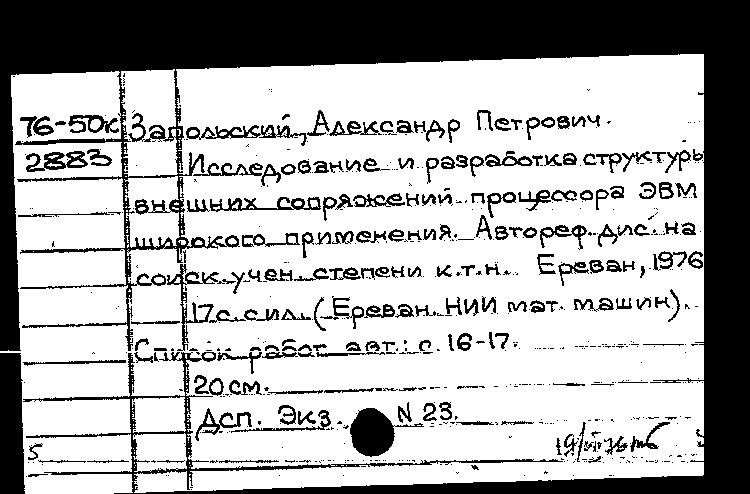 76-50к Запольский, Александр Петрович.
2883 Исследование и разработка структуры
внешних сопряжений процессора ЭВМ
широкого применения. Автореф. дис. на
соиск. учен. степени к.т.н. Ереван, 1976
17с. с ил. (Ереван. НИИ мат. машин).
Список работ авт.: с. 16-17.
20 см.
Дсп. Экз. N 23.
5